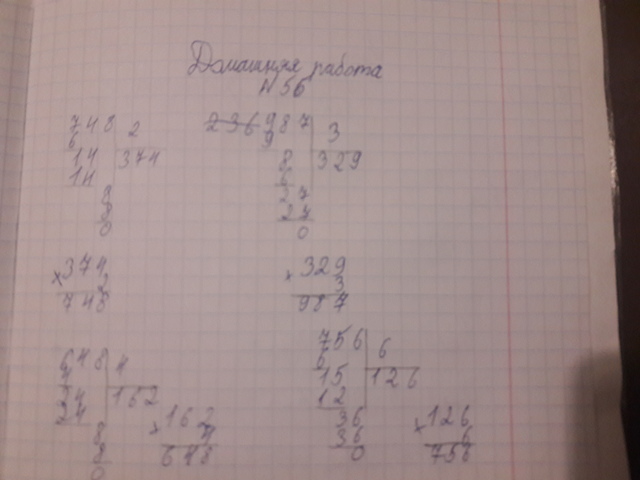 Домашняя работа
№56
748 2
6 374
14
14
8
8
0
2̶3̶6̶ 987 3
9 329
8
6
27
27
0
× 374
2
748
× 329
3
987
648 4
4 162
24
24
8
8
0
× 162
4
648
756 6
6 126
15
12
36
36
0
× 126
6
756